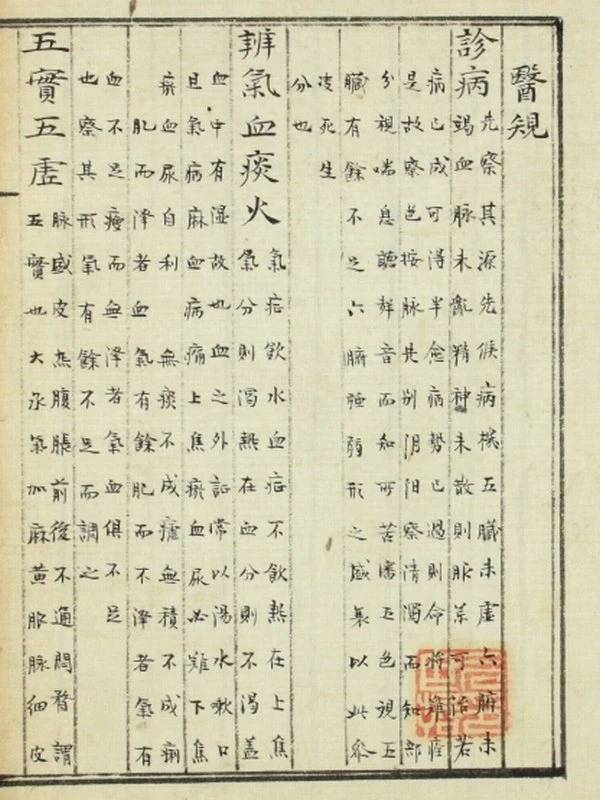 醫規
診病
先察其源先候病機五臟未虛六腑未
竭血脈未亂精神未散則服薬可治若
病已成可得半愈病勢已過則命將難痊
是故察色按脉先别阴阳察清濁而知部
分視喘息聽音而知所苦審五色視五
臟有餘不足六腑強弱形之盛衰以此參
决死生
分也
辨氣血痰火
氣症飲水血症不飲熱在上焦
氣分則渴熱在血分則不渴盖
血中有湿故也血之外証常以湯水嗽口
且氣病麻血病痛上焦瘀血尿必難下焦
瘀血尿自利 無痰不成瘧無積不成痢
肥而泽者血氣有餘肥而不泽者氣有
血不足瘦而無泽者氣血俱不足
也察其形氣有餘不足而調之
五實五虛
脉盛皮热腹脹前後不通悶瞀謂
五實也大承氣加麻黄服脉細皮